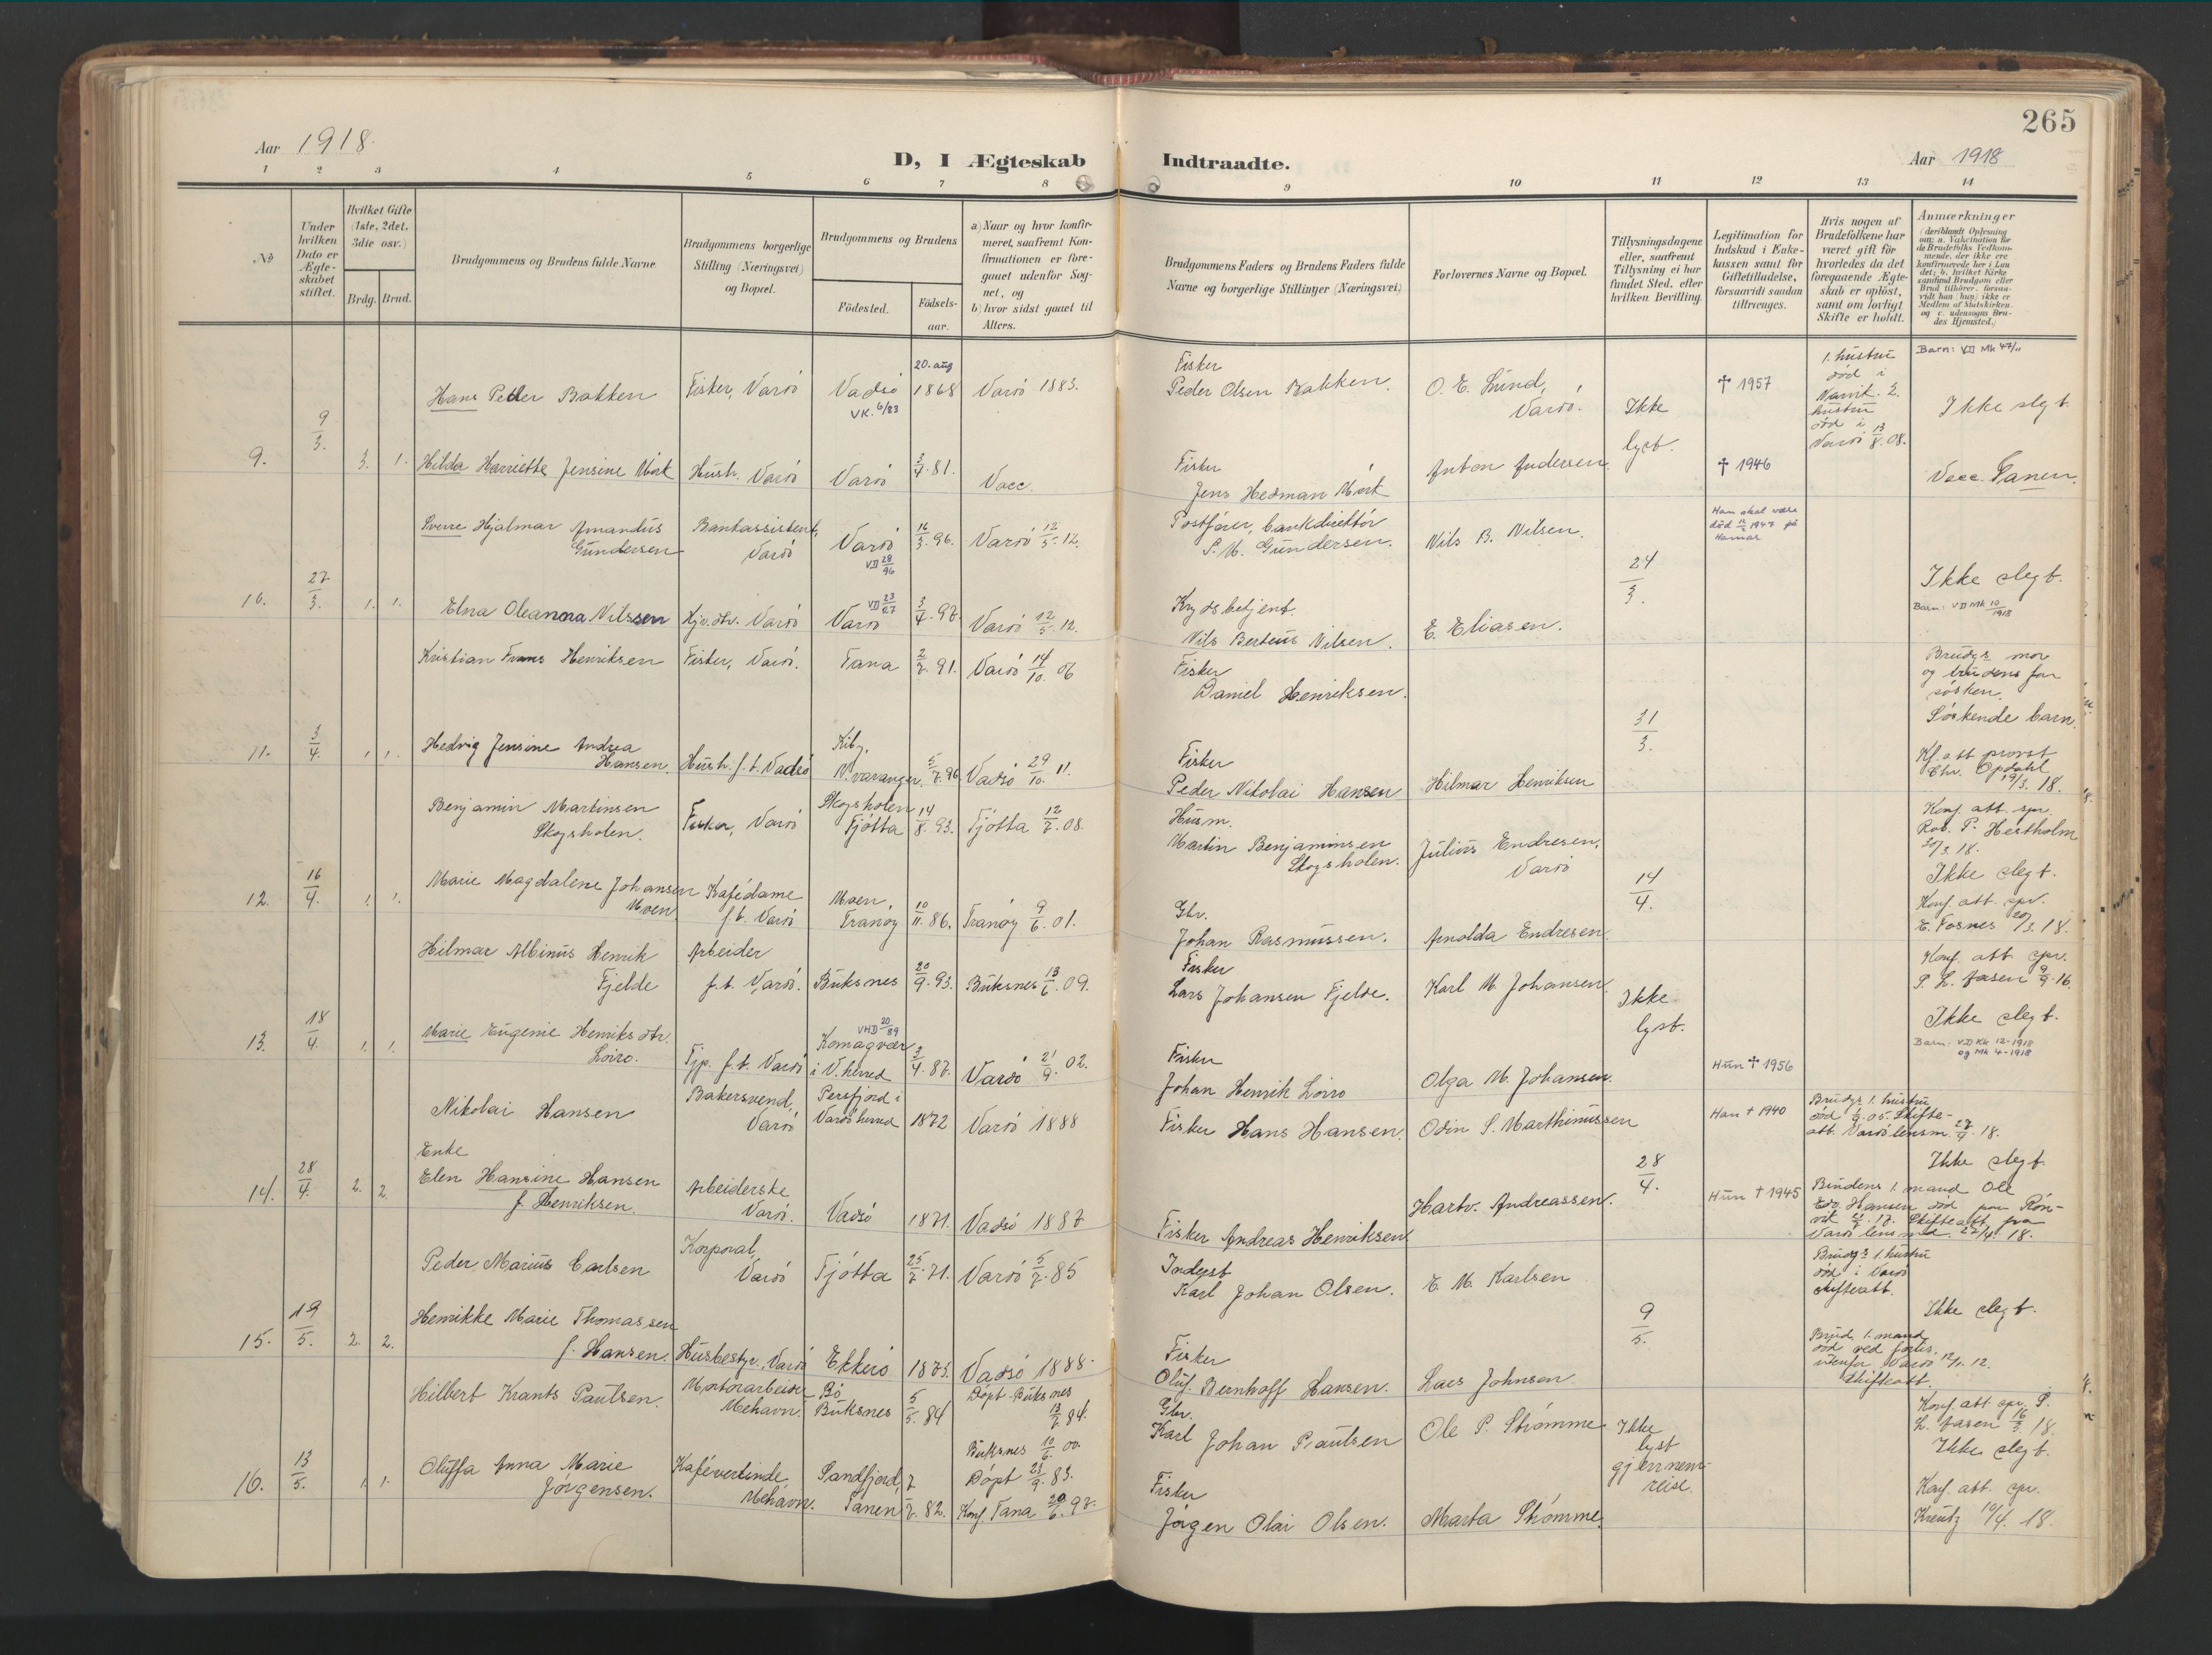 265
Aar 1918.
D, I Ægteskab Indtraadte.
Aar 1918
1 2 3 4 5 6 7 8 9 10 11 12 13 14
No
Under hvilken Dato er Ægteskabet stiftet.
Hvilket Gifte (1ste, 2det, 3die osv.)
Brdg. Brud.
Brudgommens og Brudens fulde Navne
Brudgommens borgerlige Stilling (Næringsvei) og Bopæl.
Brudgommens og Brudens
Födested.
Födselsaar.
a) Naar og hvor konfirmeret, saafremt Konfirmationen er foregaaet udenfor Sognet, og
b) hvor sidst gaaet til Alters.
Brudgommens Faders og Brudens Faders fulde Navne og borgerlige Stillinger (Næringsvei)
Forlovernes Navne og Bopæl.
Tillysningsdagene eller, saafremt Tillysning ei har fundet Sted, efter hvilken Bevilling.
Legitimation for Indskud i Enkekassen samt for Giftetilladelse, forsaavidt saadan tiltrænges.
Hvis nogen af Brudefolkene har været gift før hvorledes da det foregaaende Ægteskab er oplöst, samt om lovligt Skifte er holdt.
Anmærkninger (deriblandt Oplysning om: a. Vakcination for de Brudefolks Vedkommende, der ikke ere konfirmerede her i Landet; b. hvilket Kirkesamfund Brudgom eller Brud tilhörer, forsaavidt han (hun) ikke er Medlem af Statskirken, og c. udensogns Brudes Hjemsted.)
9. 9/3. 3. 1.
Hans Peder Bakken
Fisker, Vardö
Vadsö
VK. 6/83
20. aug 1868
Vardö 1883.
Fisker
Peder Olsen Bakken.
O. E. Lund, Vardö.
Ikke lyst.
† 1957
1. hustru död i Narvik. 2. hustru död i Vardö 13/8. 08.
Barn: VII Mk 47/11
Ikke slegt.
Hilda Harriette Jensine Mörk
Hush. Vardö
Vardö
3/4. 81.
Vacc.
Fisker
Jens Hedman Mörk
Anton Andersen
† 1946
Vacc. Tanen.
10. 27/3. 1. 1.
Sverre Hjalmar Amandus Gundersen
Bankassistent, Vardö
Vardö
VII 28/96
16/3. 96.
Vardö 12/5. 12.
Postförer, bankdirektör
S. M. Gundersen.
Nils B. Nilsen.
24/3.
Han skal være död 12/2 1947 på Hamar
Ikke slegt.
Barn: VII Mk 10/1918
Elna Oleanna Nilssen
Hjv. dtr. Vardö
Vardö
VII 23/27
3/4. 97.
Vardö 12/5. 12.
Krydsbetjent
Nils Berteus Nilsen.
E. Eliasen.
11. 3/4. 1. 1.
Kristian Frans Henriksen
Fisker, Vardö.
Tana
2/7. 91.
Vardö 14/10. 06
Fisker
Daniel Henriksen.
31/3.
Brudgs mor og brudens far söskene.
Söskende barn.
Hedvig Jensine Andrea Hansen.
Hush. f. t. Vadsö
Kiby, N. varanger
5/7. 96
Vadsö 29/10. 11.
Fisker
Peder Nikolai Hansen
Hilmar Henriksen
Kf. att. provst Chr. Opdahl 19/3. 18.
12. 16/4. 1. 1.
Benjamin Martinsen Skogsholen.
Fisker, Vardö
Skogsholen Tjötta
14/8. 93.
Tjötta 12/7. 08.
Husm.
Martin Benjaminsen Skogsholen.
Julius Endresen, Vardö
14/4.
Konf. att. spr. Rob. P. Hestholm 20/3 18.
Ikke slegt.
Marie Magdalene Johansen Moen.
Kafédame f. t. Vardö
Moen, Tranöy
10/11. 86.
Tranöy 9/6. 01.
Gbr.
Johan Rasmussen.
Arnolda Endresen.
Konf. att. spr. E. Fosnes 20/3. 18.
13. 18/4. 1. 1.
Hilmar Albinus Henrik Fjelde
Arbeider f. t. Vardö.
Buksnes
20/9. 93.
Buksnes 13/6. 09.
Fisker
Lars Johansen Fjelde.
Karl M. Johansen.
Ikke lyst.
Konf. att. spr. P. L. Aasen 9/9. 16.
Ikke slegt.
Marie Eugenie Henriksdtr. Loiro.
Tjp. f. t. Vardö
VHD 20/89
Komagvær i V. herred
3/4. 87.
Vardö 21/9. 02.
Fisker
Johan Henrik Loiro
Olga M. Johansen.
Hun † 1956
Barn: VII Kk 12-1918 og Mk 4-1918
14. 28/4. 2. 2.
Nikolai Hansen
Bakersvend, Vardö
Persfjord i Vardö herred
1872
Vardö 1888
Fisker Hans Hansen.
Odin S. Marthinussen
28/4.
Han † 1940
Brudgs 1. hustru död 05. Skifteatt. Vardö lensm. 18.
Ikke slegt.
Enke
Elen Hansine Hansen f. Henriksen.
Arbeiderske Vardö.
Vadsö
1871.
Vadsö 1887
Fisker Andreas Henriksen
Hartv. Andreassen.
Hun † 1945
Brudens 1. mand Ole Edv. Hansen död paa Rönvik 17. Skifteatt. fra Vardö lensmd. 27/4. 18.
15. 19/5. 2. 2.
Peder Marius Carlsen
Korporal, Vardö
Tjötta
25/7. 71.
Vardö 5/7. 85
Inderst
Karl Johan Olsen.
E. M. Karlsen
9/5.
Brudgs 1. hustru död i Vardö skifteatt.
Ikke slegt.
Henrikke Marie Thomassen f. Hansen.
Husbestyr. Vardö
Ekkerö
1873.
Vadsö 1888.
Fisker
Oluf Bernhoff Hansen.
Lars Johnsen
Brud. 1. mand död ved forlis, utenfor Vardö 12/11. 12. Skifteatt.
16. 13/5. 1. 1.
Hilbert Krants Paulsen.
Motorarbeider Mehavn.
Bö Buksnes
5/5. 84
Döpt Buksnes 13/7. 84.
Buksnes 10/6. 00.
Gbr.
Karl Johan Paulsen
Ole P. Strømme
Ikke lyst gjennemreise.
Konf. att. spr. P. L. Aasen 16/3. 18.
Ikke slegt.
Oluffa Anna Marie Jörgensen.
Kafévertinde Mehavn.
Sandfjord, Tanen
7/7. 82.
Döpt 23/9. 83.
Konf. Tana 20/6. 97.
Fisker
Jörgen Olai Olsen.
Marta Strømme.
Konf. att. spr. Kreutz 10/4. 18.